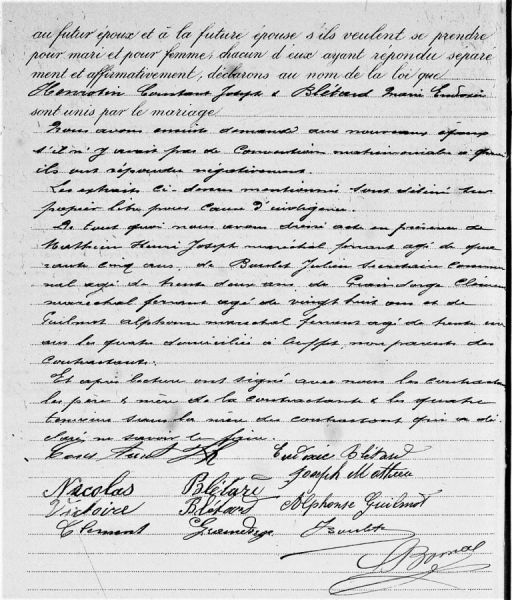 au futur époux et à la future épouse s'ils veulent se prendre
pour mari et pour femme; chacun d'eux ayant répondu séparé
ment et affirmativement, déclarons au nom de la loi que
Henrotin Constant Joseph & Blétard Marie Eudoxie
sont unis par le mariage
Nous avons ensuite demandé aux nouveaux époux
s'il n'y avait pas de convention matrimoniale à quoi
ils ont répondu négativement.
Les extraits ci-dessus mentionnés sont délivré sur
papier libre pour cause d'indigence.
De tout quoi nous avons dressé acte en présence de
Mathieu Henri Joseph maréchal ferrant agé de qua
rante cinq ans, de Boulet Julien secrétaire commu
nal agé de trente deux ans, de Graindorge Clément
maréchal ferrant agé de vingt huit ans et de
Guilmot alphonse maréchal ferrant agé de trente
ans les quatre domiciliés à non parents des
contractants.
Et après lecture ont signé avec nous les contractants
les père & mère de la contractante & les quatre
témoins sauf la mère du contractant qui a dé
claré ne savoir le faire.
Eudoxie Blétard
Joseph Mathieu
Nicolas Blétard
Victoire Blétard Alphonse Guilmot
Clement Graindorge Boulet